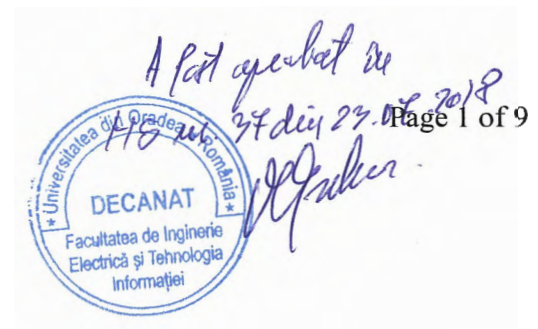 A fost aprobat in
HS nr. 37 din 23.07.2018
Page 1 of 9
* Universitatea din Oradea - România *
DECANAT
Facultatea de Inginerie
Electrică și Tehnologia
Informației